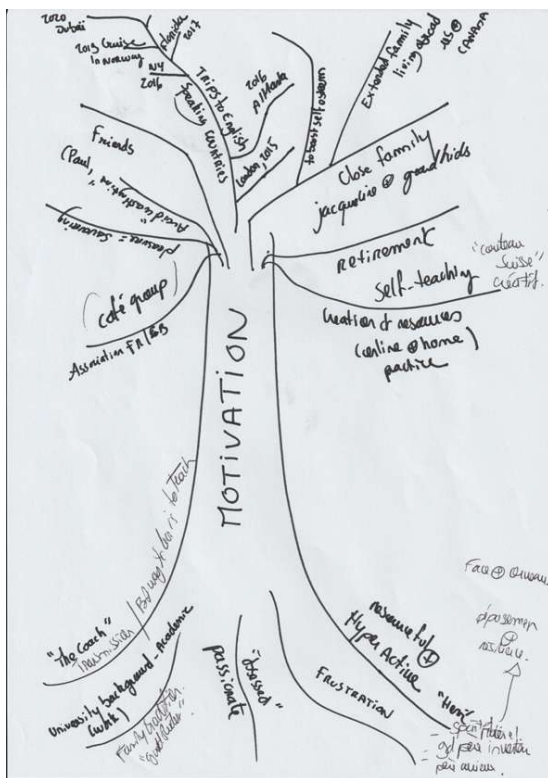 2020
Dubai
2019 Cruise
In Norway
NY
2016
Florida
2017
TRIPS to English
Speaking COUNTRIES
2016
Atlanta
London, 2015
to boost self esteem
Extended family
living abroad
US ⊕
CANADA
Friends
(Paul,
"Avoid wasting time"
pleasure = Savouring
(café group)
Association FR/GB
Close family
jacqueline ⊕ grand kids
retirement
self-teaching
"couteau
Suisse"
créatif.
Creation of resources
(online ⊕ home)
practice
MOTIVATION
"The Coach"
Transmission / Best way to learn is to teach
University background - Academic
(work)
Family
passionate
"obsessed"
FRUSTRATION
resourceful ⊕
Hyper Active
"Hero"
Face ⊕
⊕
résilience.
gd père inventeur
père